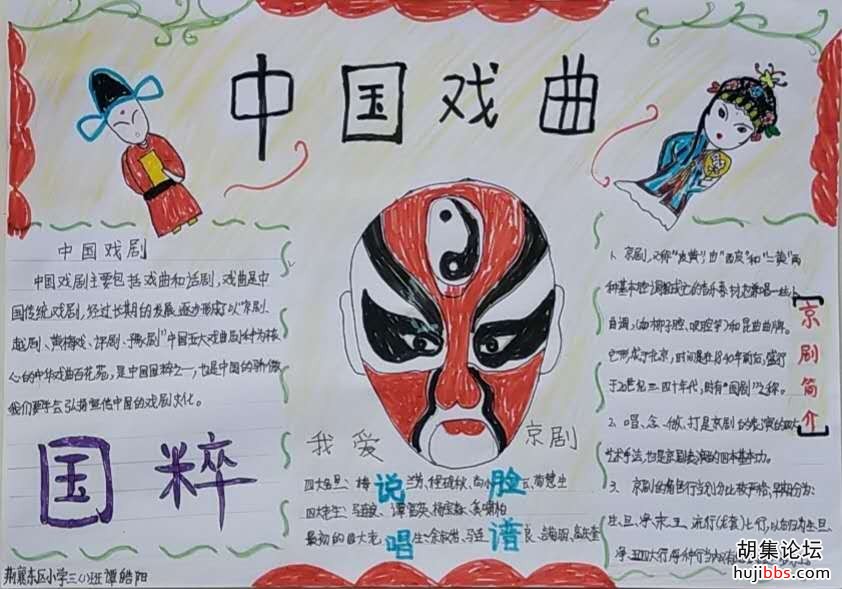 中国戏曲
中国戏剧
中国戏剧主要包括戏曲和话剧，戏曲是中
国传统戏剧，经过长期的发展，逐步形成了以“京剧、
越剧、黄梅戏、评剧、豫剧”中国五大戏曲剧种为核
心的中华戏曲百花苑，是中国国粹之一，也是中国的骄傲
我们要学会弘扬宣传中国的戏剧文化。
国粹
我爱
京剧
说
脸
唱
谱
四大名旦：梅兰芳、程砚秋、尚小云、荀慧生
四大老生：马连良、谭富英、杨宝森、奚啸伯
京剧简介
1、京剧，又称“皮黄”，由“西皮”和“二黄”两
种基本腔调组成它的音乐素材，也兼唱一些
曲调，（如柳子腔、吹腔等）和昆曲曲牌。
它形成于北京，时间是在1840年前后，盛行
于20世纪三、四十年代，时有“国剧”之称。
2、唱、念、做、打是京剧的表演的四大
艺术手法，也是京剧表演的四本基本功。
3、京剧的角色行当划分比较严格，早期分为：
生、旦、净、末、丑
荆襄东区小学三（1）班 谭皓阳
胡集论坛
hujibbs.com